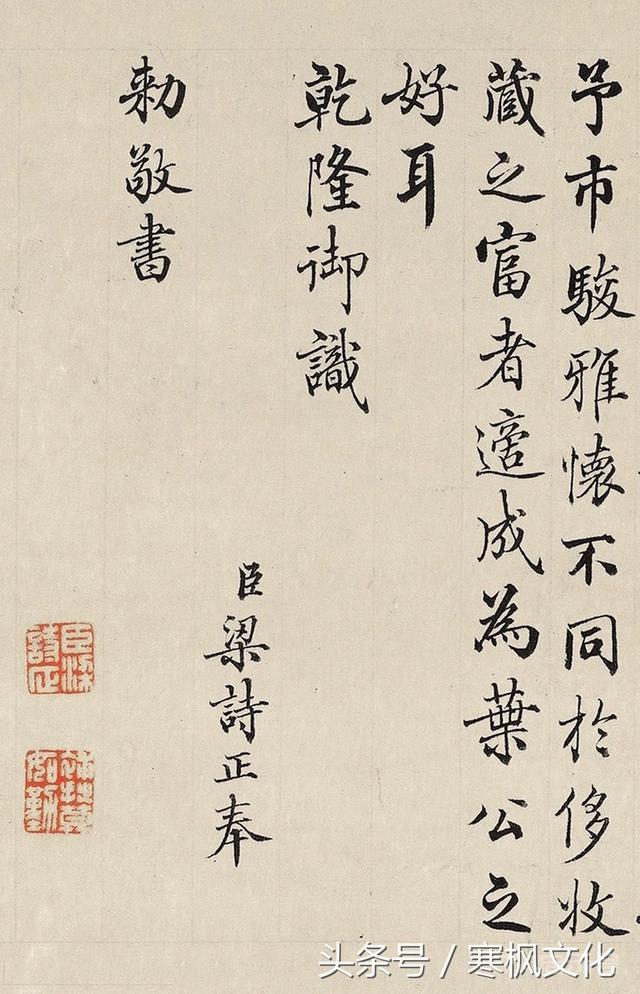 予市駿雅懷不同於侈收
藏之富者適成為葉公之
好耳
乾隆御識
臣梁詩正奉
勅敬書
臣梁
詩正
頭条号 / 寒枫文化